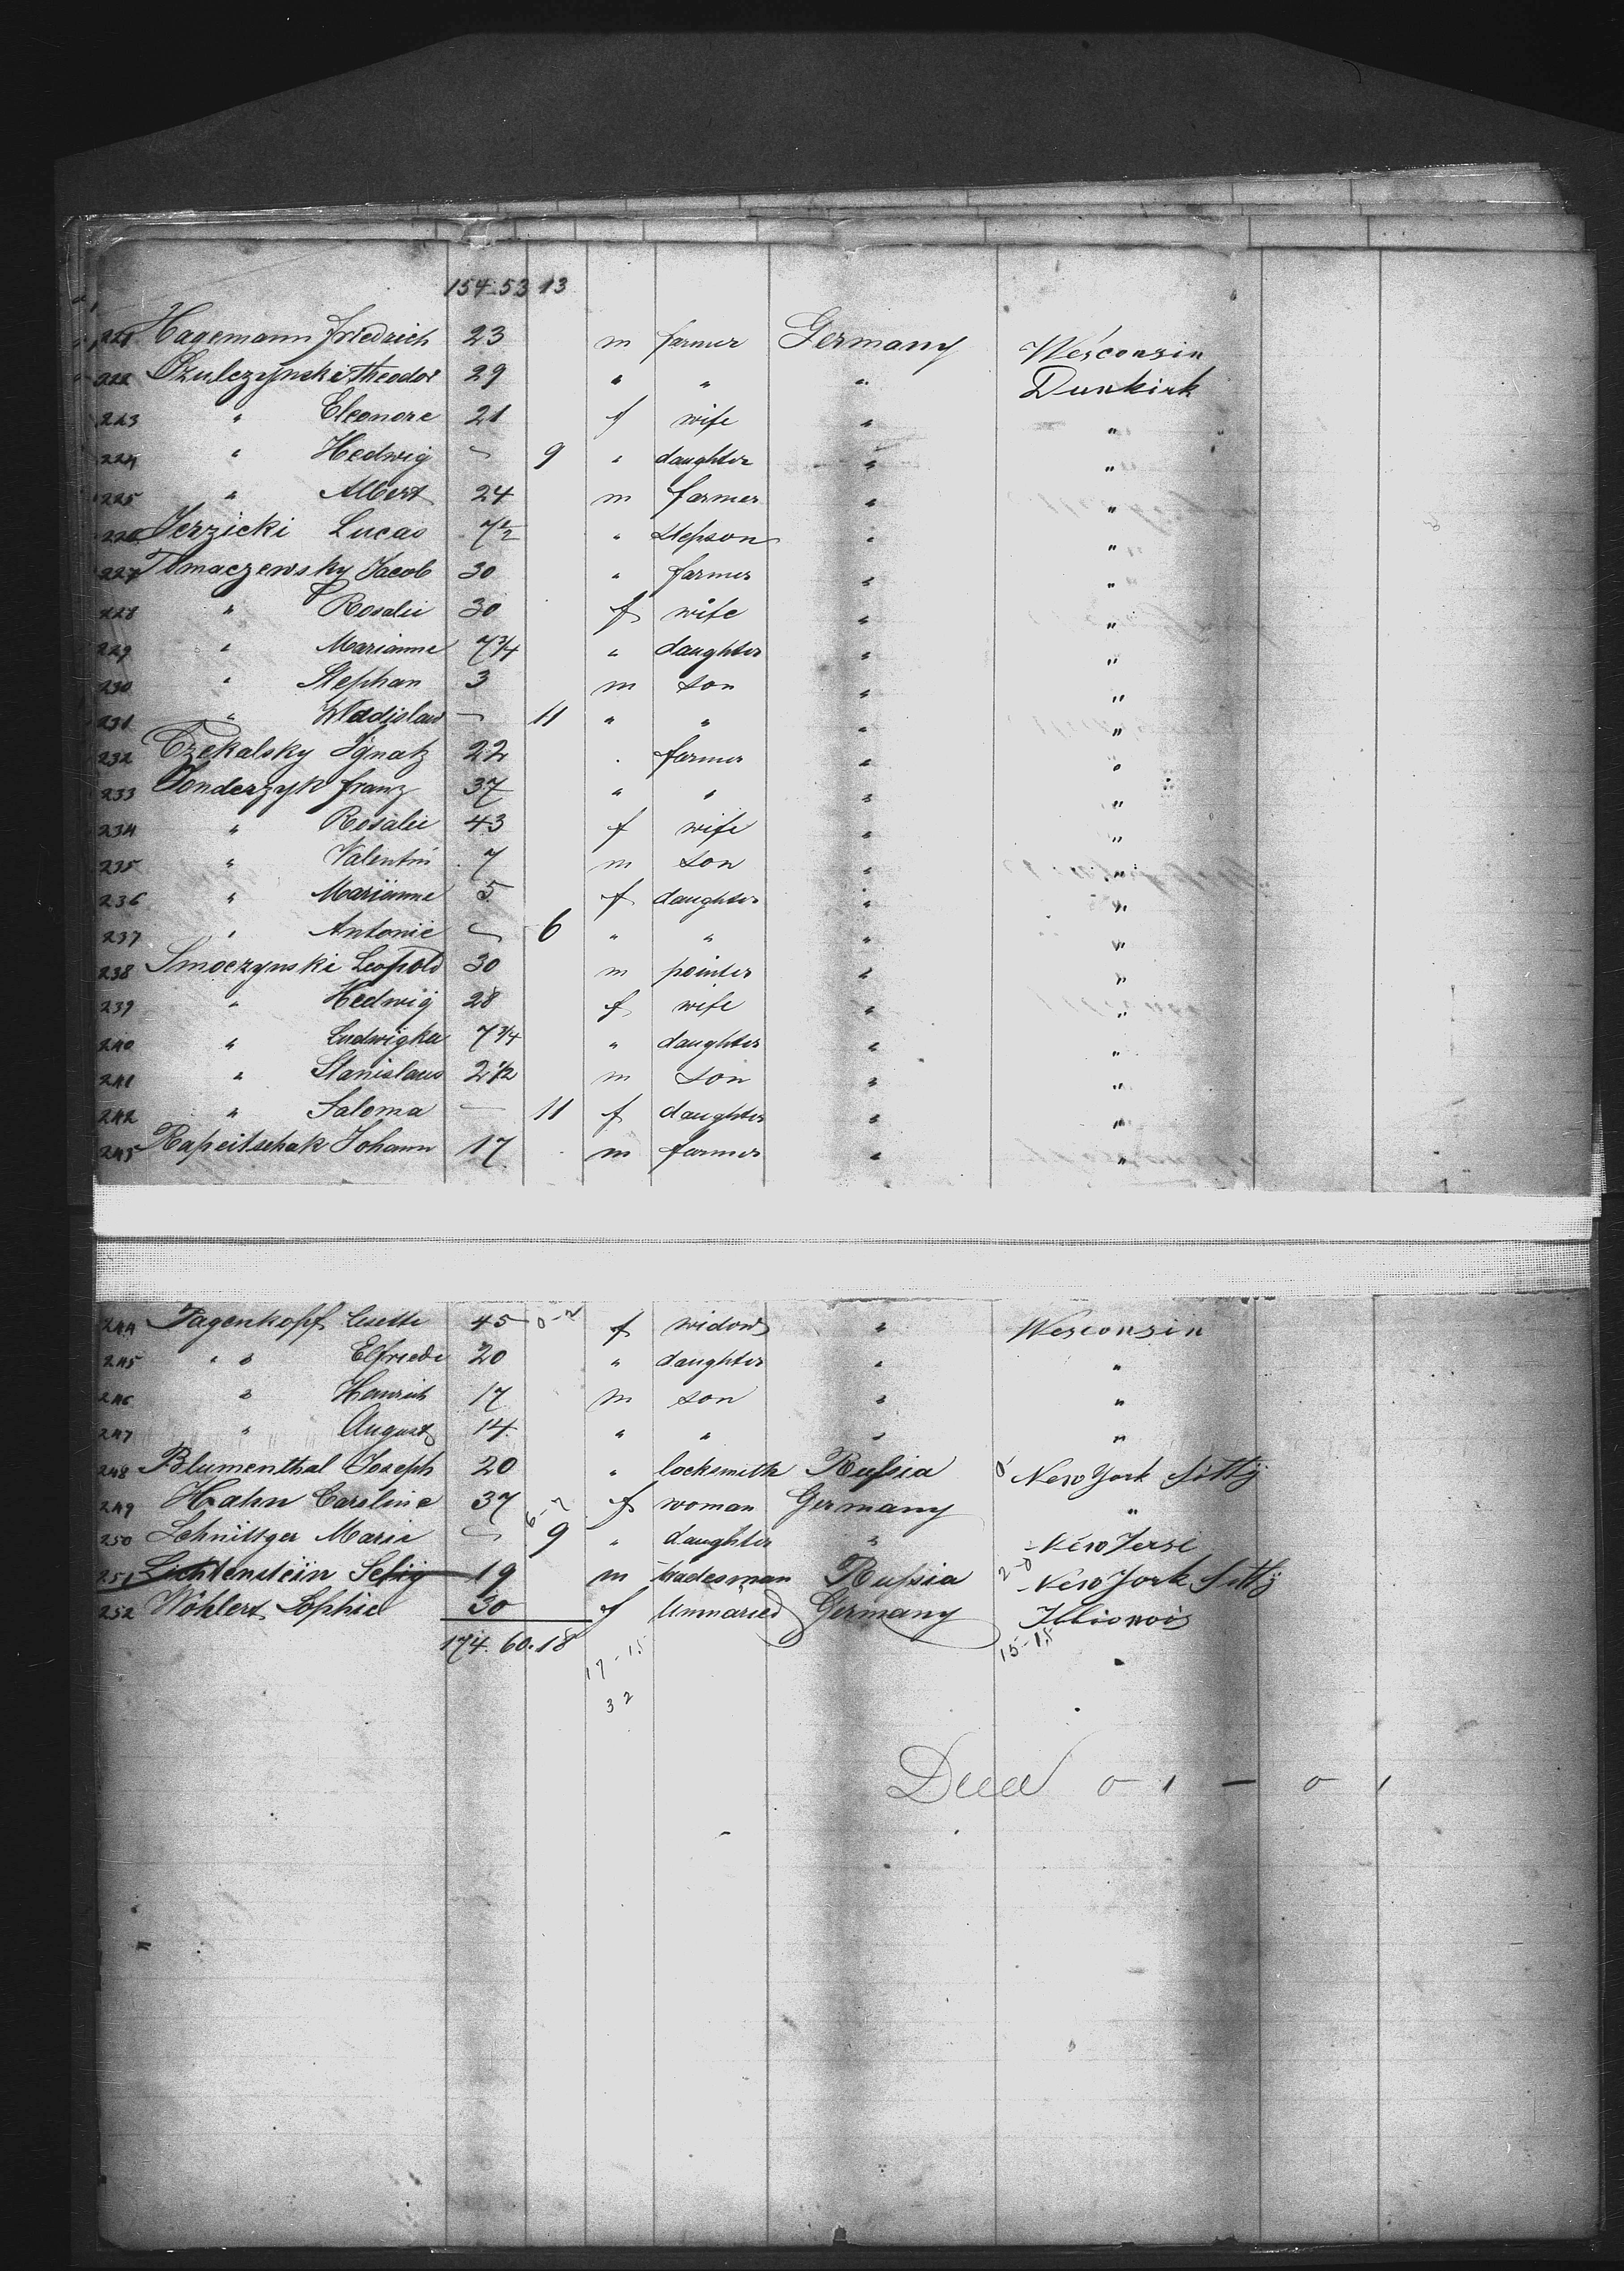 154 53 13
221 Hagemann Friedrich 23 m farmer Germany Wesconsin
222 Czulczynski Theodor 29 " " " Dunkirk
223 " Eleonore 21 f wife " "
224 " Hedwig — 9 " daughter " "
225 " Albert 24 m farmer " "
226 Jerzicki Lucas 7½ " stepson " "
227 Tomaczewsky Jacob 30 " farmer " "
228 " Rosalie 30 f wife " "
229 " Marianne 7¾ " daughter " "
230 " Stephan 3 m son " "
231 " Wladislaw — 11 " " " "
232 Czekalsky Ignatz 22 " farmer " "
233 Gonderzyk Franz 37 " " " "
234 " Rosalie 43 f wife " "
235 " Valentin 7 m son " "
236 " Marianne 5 f daughter " "
237 " Antonie — 6 " " " "
238 Smoczynski Leopold 30 m pointer " "
239 " Hedwig 28 f wife " "
240 " Ludwigka 7¾ " daughter " "
241 " Stanislaus 2½ m son " "
242 " Saloma — 11 f daughter " "
243 Rapeitschak Johann 17 m farmer " "
244 Tagenkopf Lisette 45 0-2 f widow " Wesconsin
245 " Elfriede 20 " daughter " "
246 " Heinrich 17 m son " "
247 " August 14 " " " "
248 Blumenthal Joseph 20 " locksmith Russia New York Sitty
249 Hahn Caroline 37 f woman Germany "
250 Schnittger Marie — 9 " daughter " New Jerse
251 Lichtenstein Selig 19 m tradesman Russia 2-0 New York Sitty
252 Wöhlert Sophie 30 f Unmaried Germany Illionois
174. 60. 18
17-15
15-15
32
Deed 0 1 — 0 1